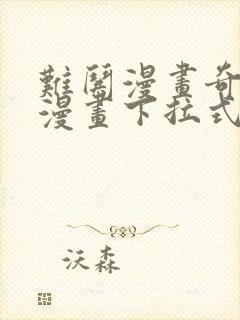 難鬧漫畫奇
漫畫下拉式
沃森